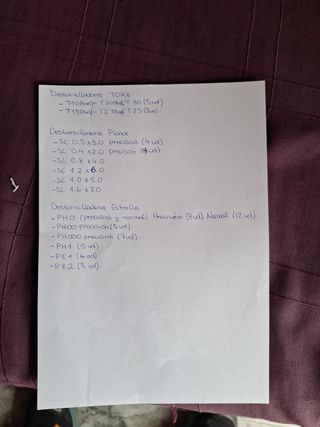 Destornilladores TORX
- T10(4ud)- T20 T30 (5ud)
- T15 - T27 T25 (3ud)
Destornilladores Planos
- SL 0.5 x 3.0 precisión (4 ud)
- SL 0.4 x 2.0 precisión ( ud)
- SL 0.8 x 4.0
- SL 1.2 x 6.0
- SL 1.0 x 5.0
- SL 1.6 x 8.0
Destornilladores Estrella
- PH0 (precisión y normal) Precisión (3 ud) Normal (12 ud)
- PH00 precisión (5 ud)
- PH000 precisión (7 ud)
- PH1 (5 ud)
- PZ1 (6 ud)
- PZ2 (3 ud)